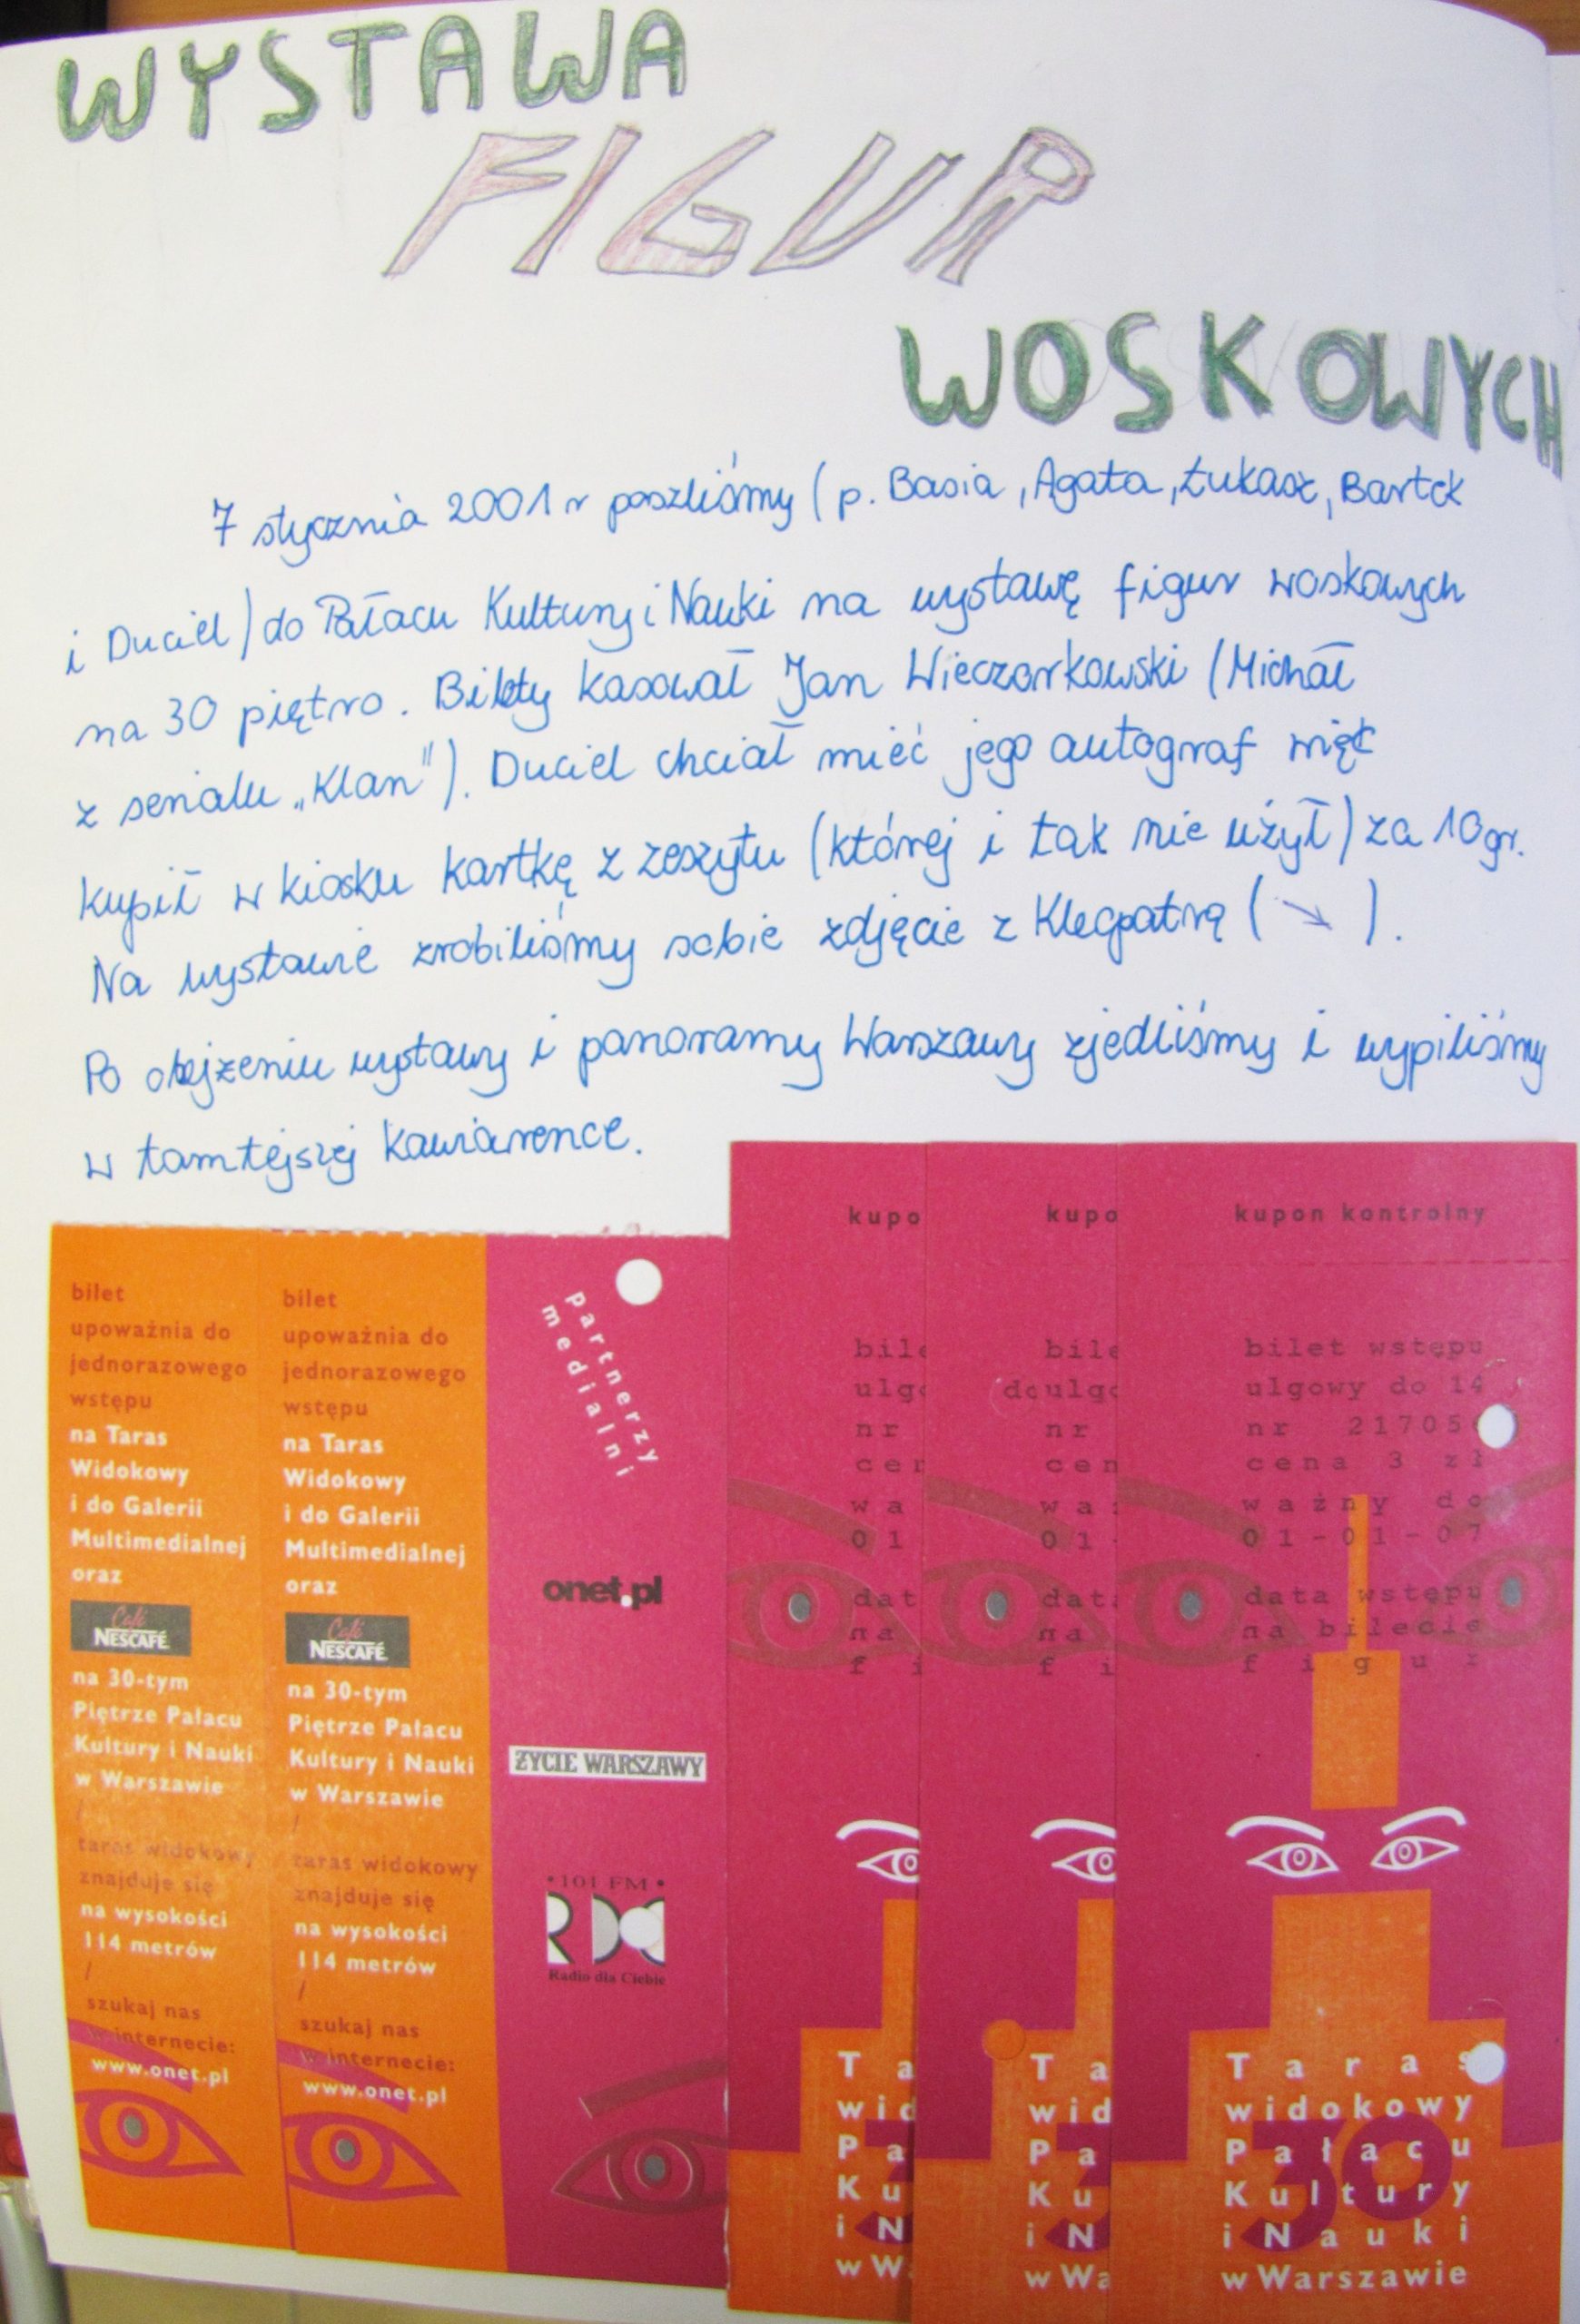 WYSTAWA
FIGUR
WOSKOWYCH
7 stycznia 2001 r poszliśmy (p. Basia, Agata, Łukasz, Bartek
i Duciel) do Pałacu Kultury i Nauki na wystawę figur woskowych
na 30 piętro. Bilety kasował Jan Wieczorkowski (Michał
z serialu „Klan"). Duciel chciał mieć jego autograf więc
kupił w kiosku kartkę z zeszytu (której i tak nie użył) za 10 gr.
Na wystawie zrobiliśmy sobie zdjęcie z Kleopatrą (↘).
Po obejżeniu wystawy i panoramy Warszawy zjedliśmy i wypiliśmy
w tamtejszej kawiarence.
bilet
upoważnia do
jednorazowego
wstępu
na Taras
Widokowy
i do Galerii
Multimedialnej
oraz
Café
NESCAFÉ
na 30-tym
Piętrze Pałacu
Kultury i Nauki
w Warszawie
/
taras widokowy
znajduje się
na wysokości
114 metrów
/
szukaj nas
w internecie:
www.onet.pl
bilet
upoważnia do
jednorazowego
wstępu
na Taras
Widokowy
i do Galerii
Multimedialnej
oraz
Café
NESCAFÉ
na 30-tym
Piętrze Pałacu
Kultury i Nauki
w Warszawie
/
taras widokowy
znajduje się
na wysokości
114 metrów
/
szukaj nas
w internecie:
www.onet.pl
partnerzy
medialni
onet.pl
ŻYCIE WARSZAWY
•101 FM•
RDC
Radio dla Ciebie
kupo
bile
ulgo
nr
cen
wa
01
dat
na
fi
Ta
wid
Pa
Ku
i N
w W
kupo
bile
do ulgo
nr
cen
wa
01-
dat
na
fi
Ta
wid
Pa
Ku
i N
w Wa
kupon kontrolny
bilet wstępu
ulgowy do 14
nr 21705
cena 3 zł
ważny do
01-01-07
data wstępu
na bilecie
figur
30
Taras
widokowy
Pałacu
Kultury
i Nauki
w Warszawie